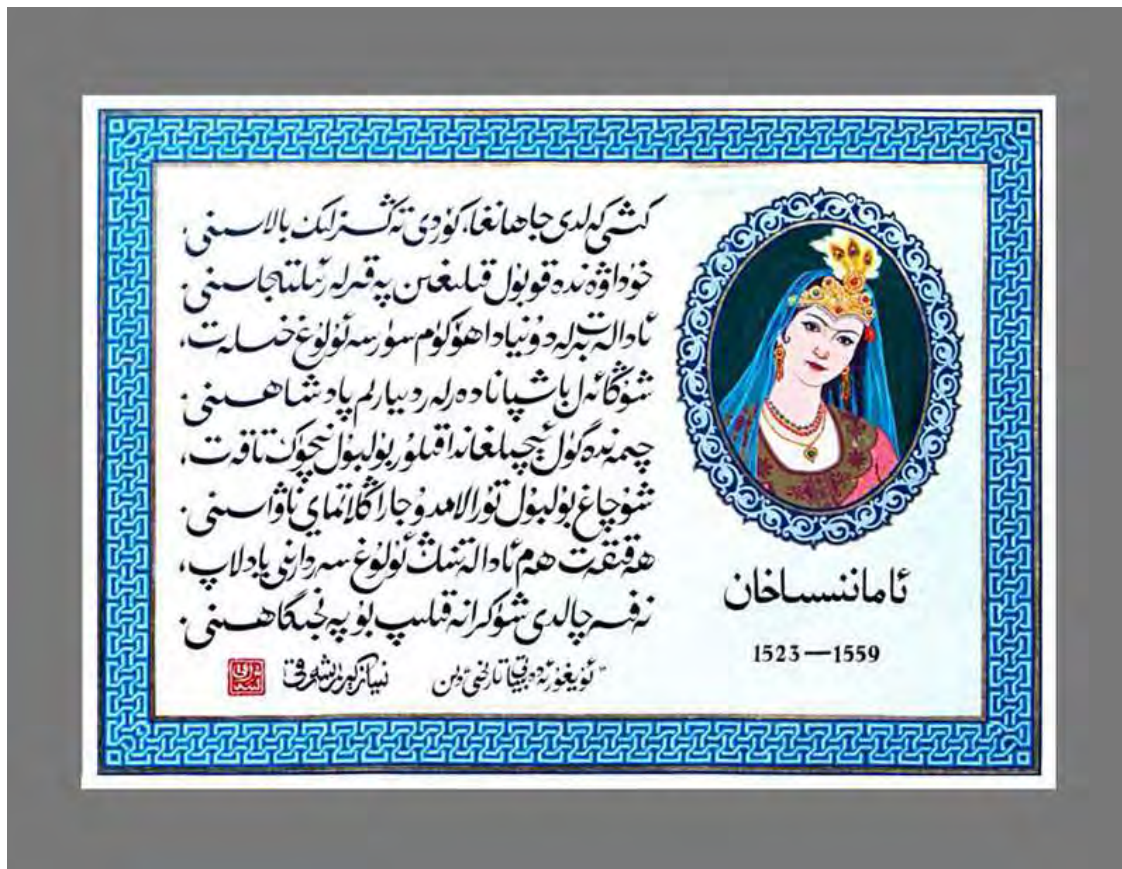 كىشى كەلدى جاھانغا، كۆردى تەڭسىزلىك بالاسىنى.
خۇداۋەندە قوبۇل قىلىغىن پەقىرلەر ئىلتىجاسىنى.
ئادالەت بىرلە دۇنيادا ھۆكۈم سۈرسە ئۇلۇغ خىسلەت،
شۇڭا ئەل باش پانادەرلەر دىيارىم پادىشاھىنى.
چىمەندە گۈل ئېچىلغاندا قىلۇر بۇلبۇل نېچۈك تاقەت،
شۇ چاغ بۇلبۇل تۇرالامدۇ جاراڭلاتماي ناۋاسىنى.
ھەقىقەت ھەم ئادالەتنىڭ ئۇلۇغ سەردارىنى يادلاپ،
نەفىس چالدى شۈكرانە قىلىپ بۇ پەنجىگاھىنى.
"ئۇيغۇر ئەدەبىيات تارىخى"دىن
نىياز كېرىم شەرقى
ئاماننىساخان
1523—1559